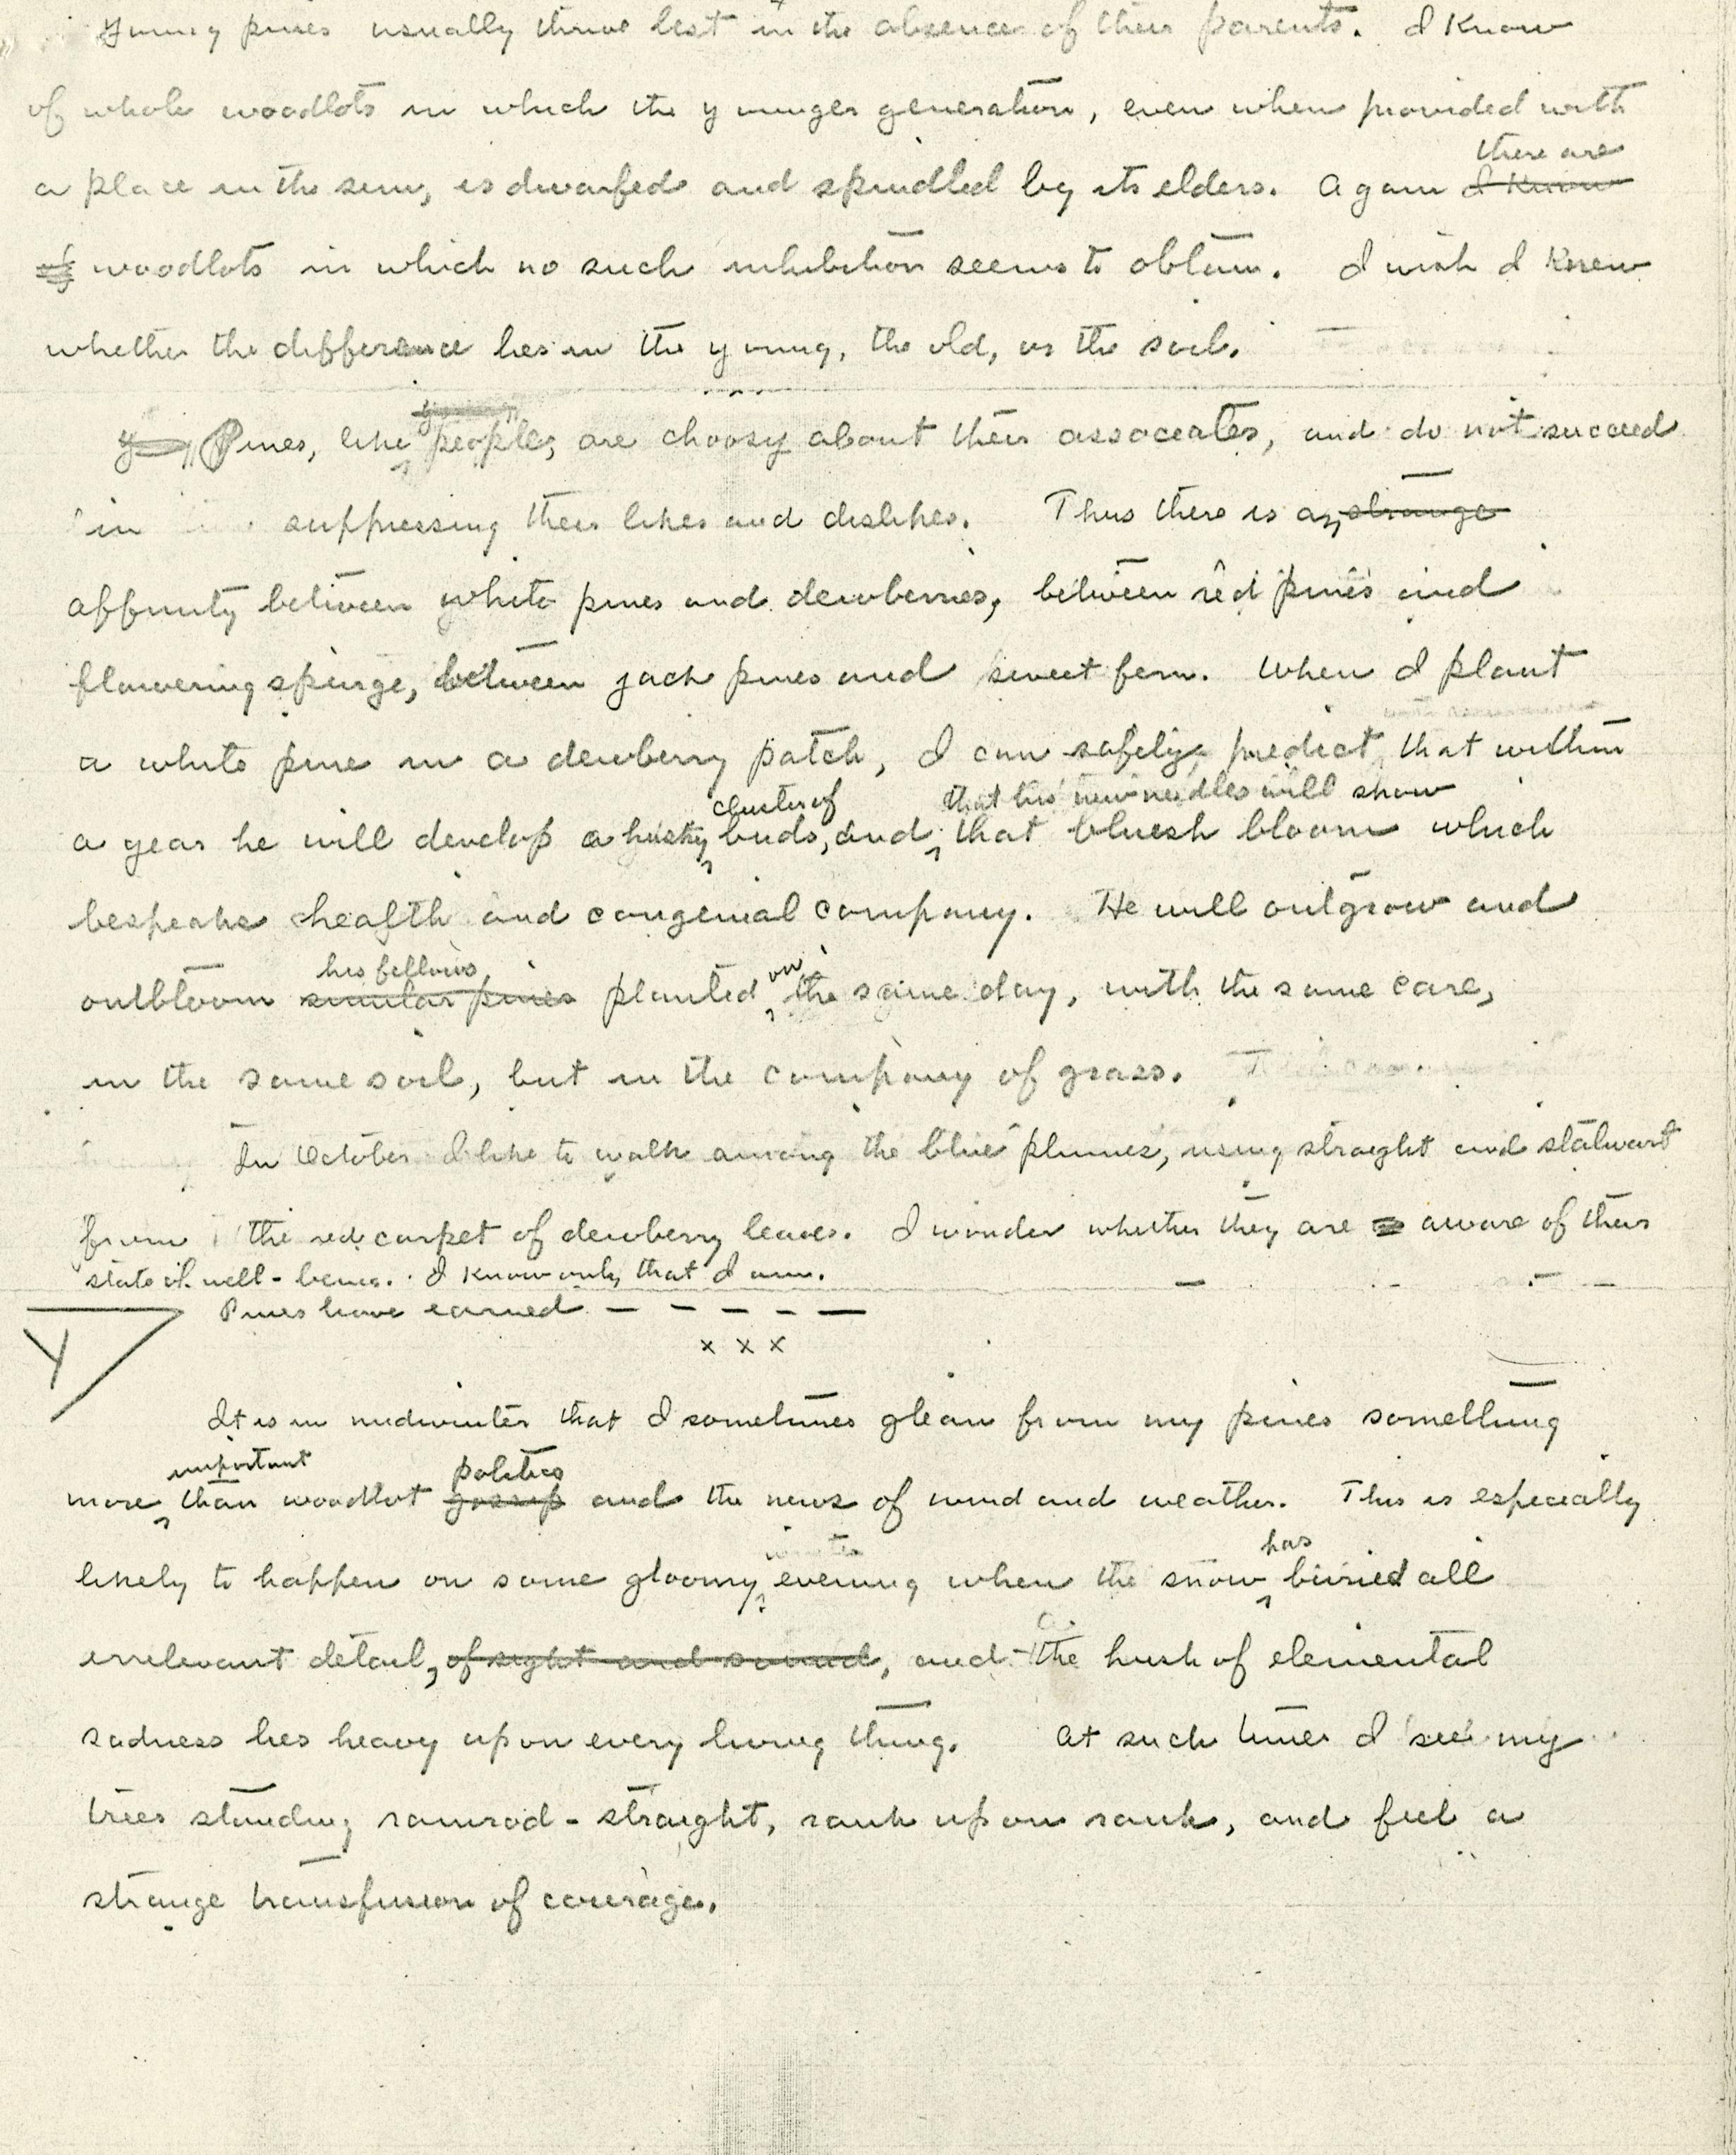 Young pines usually thrive best in the absence of their parents. I know
of whole woodlots in which the younger generation, even when provided with
there are
a place in the sun, is dwarfed and spindled by its elders. Again I know
of woodlots in which no such inhibition seems to obtain. I wish I knew
whether the difference lies in the young, the old, or the soil.
Pines, like people, are choosy about their associates, and do not succeed
in suppressing their likes and dislikes. Thus there is an strange
affinity between white pines and dewberries, between red pines and
flowering spurge, between jack pines and sweet fern. When I plant
a white pine in a dewberry patch, I can safely predict that within
cluster of that his new needles will show
a year he will develop a husky buds, and that bluish bloom which
bespeaks health and congenial company. He will outgrow and
his fellows on
outbloom similar pines planted the same day, with the same care,
in the same soil, but in the company of grass.
In October I like to walk among the blue plumes, rising straight and stalwart
from the red carpet of dewberry leaves. I wonder whether they are aware of their
state of well-being. I know only that I am.
Pines have earned - - - - -
Y
x x x
It is in midwinter that I sometimes glean from my pines something
important politics
more than woodlot gossip and the news of wind and weather. This is especially
has
likely to happen on some gloomy evening when the snow buried all
irrelevant detail, of sight and sound, and the hush of elemental
sadness lies heavy upon every living thing. At such times I see my
trees standing ramrod-straight, rank upon rank, and feel a
strange transfusion of courage.